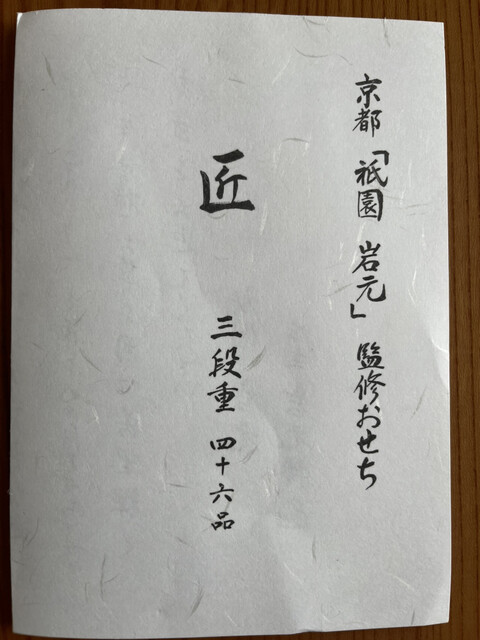 京都「祇園 岩元」監修おせち
匠 三段重 四十六品